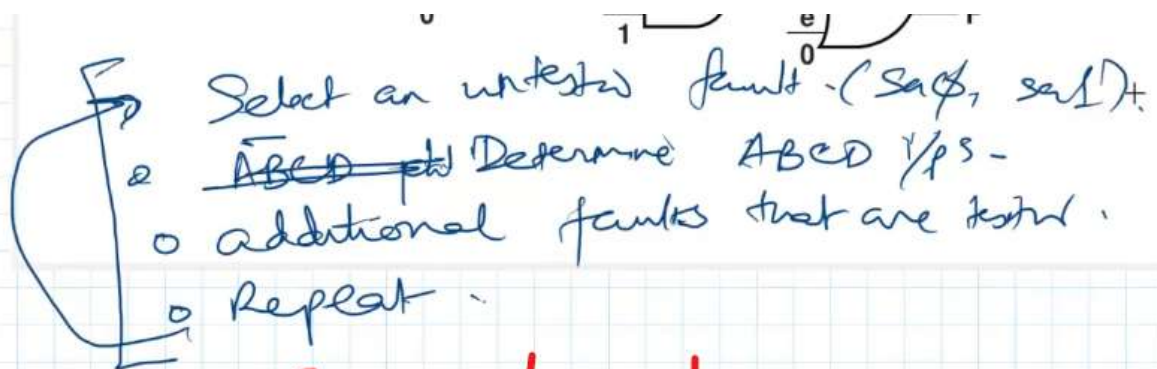 1 e 0
Select an untested fault. (sa0, sa1).
ABCD Determine ABCD i/ps -
additional faults that are tested.
Repeat.